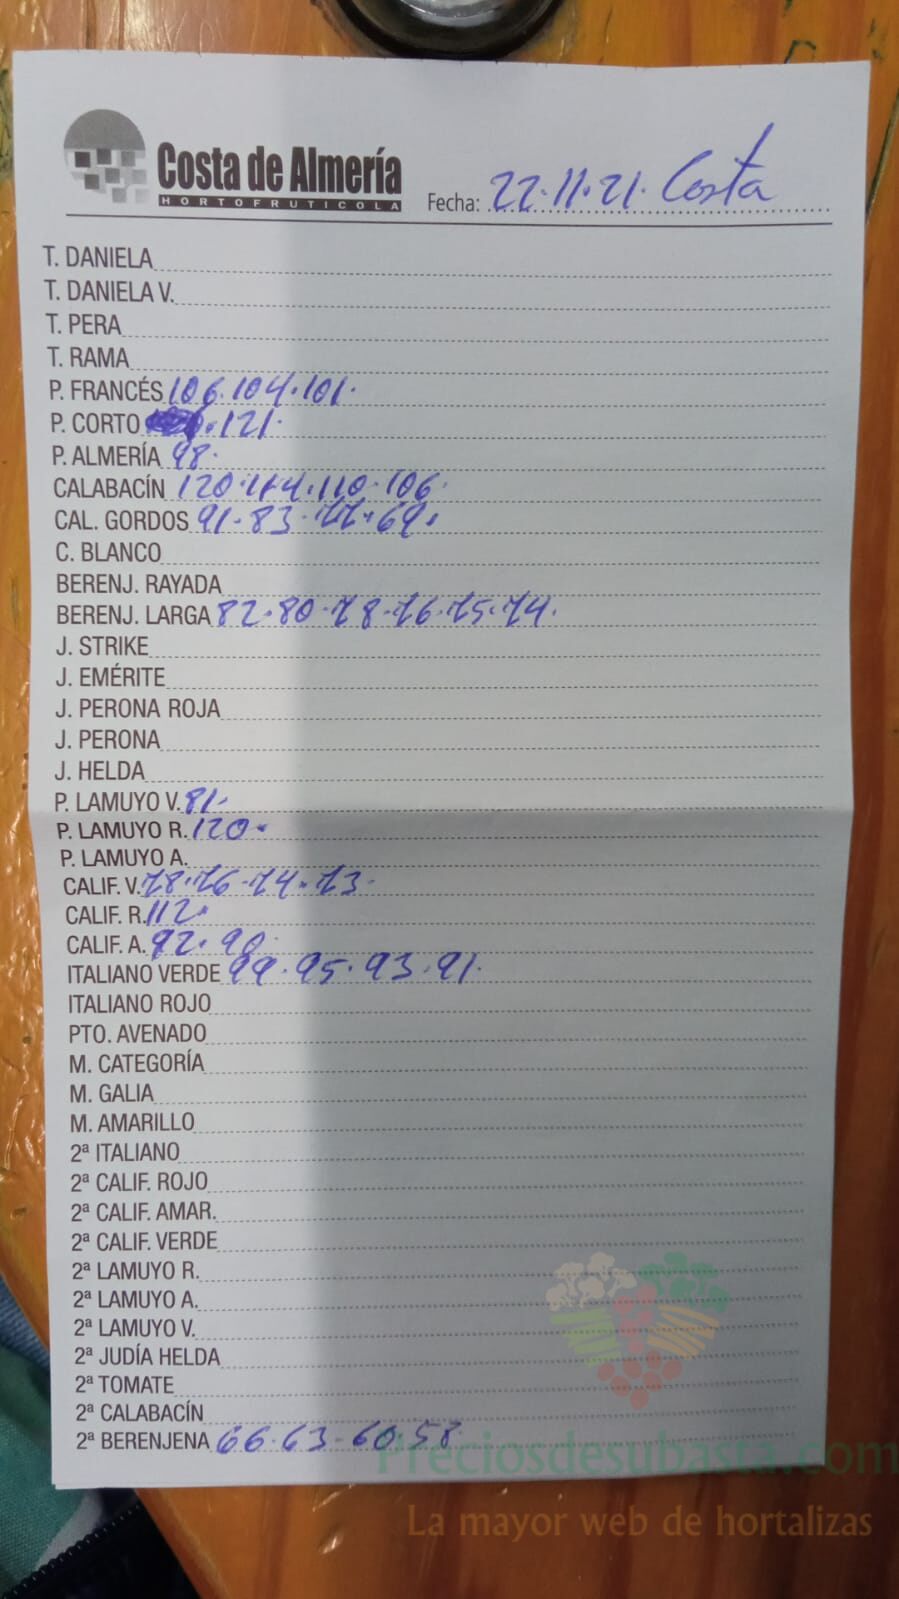 Costa de Almería
HORTOFRUTICOLA
Fecha: 22·11·21· Costa
T. DANIELA
T. DANIELA V.
T. PERA
T. RAMA
P. FRANCÉS 106·104·101·
P. CORTO ·121·
P. ALMERÍA 98·
CALABACÍN 120·114·110·106·
CAL. GORDOS 91·83·77·69·
C. BLANCO
BERENJ. RAYADA
BERENJ. LARGA 82·80·78·76·75·74·
J. STRIKE
J. EMÉRITE
J. PERONA ROJA
J. PERONA
J. HELDA
P. LAMUYO V. 81·
P. LAMUYO R. 120·
P. LAMUYO A.
CALIF. V. 78·76·74·73·
CALIF. R. 112·
CALIF. A. 92·90·
ITALIANO VERDE 99·95·93·91·
ITALIANO ROJO
PTO. AVENADO
M. CATEGORÍA
M. GALIA
M. AMARILLO
2ª ITALIANO
2ª CALIF. ROJO
2ª CALIF. AMAR.
2ª CALIF. VERDE
2ª LAMUYO R.
2ª LAMUYO A.
2ª LAMUYO V.
2ª JUDÍA HELDA
2ª TOMATE
2ª CALABACÍN
2ª BERENJENA 66·63·60·58
Preciosdesubasta.com
La mayor web de hortalizas